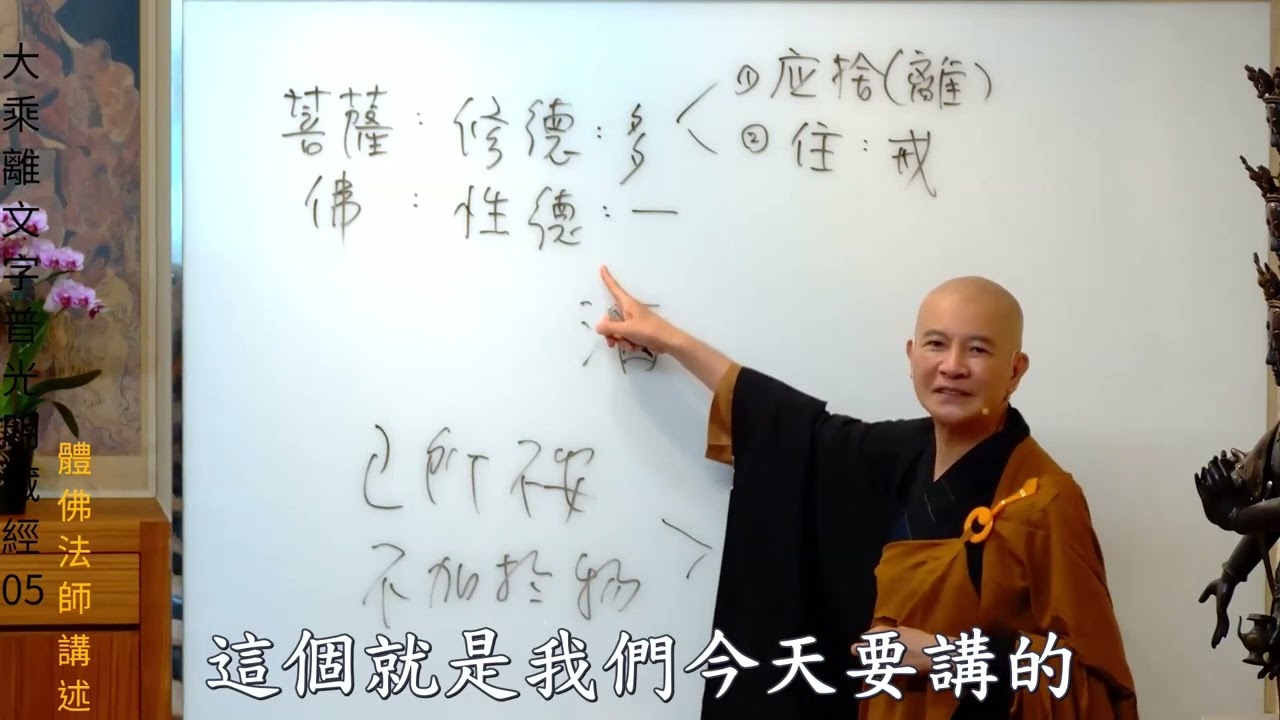 大乘離文字普光明藏經05
體佛法師講述
菩薩：修德：多
①应捨(離)
②住：戒
佛：性德：一
己所不安
不加於物
這個就是我們今天要講的